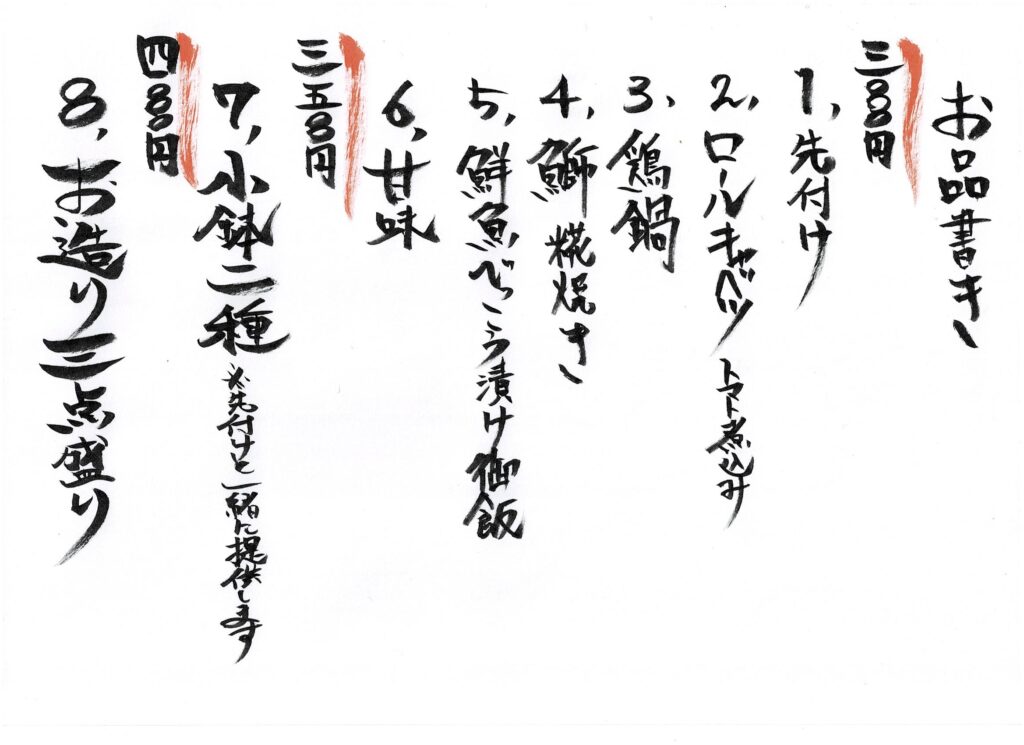 お品書き
三〇〇〇円
1、先付け
2、ロールキャベツ トマト煮込み
3、鶏鍋
4、鰤糀焼き
5、鮮魚べっこう漬け御飯
6、甘味
三五〇〇円
7、小鉢二種 ※先付けと一緒に提供します
四〇〇〇円
8、お造り三点盛り